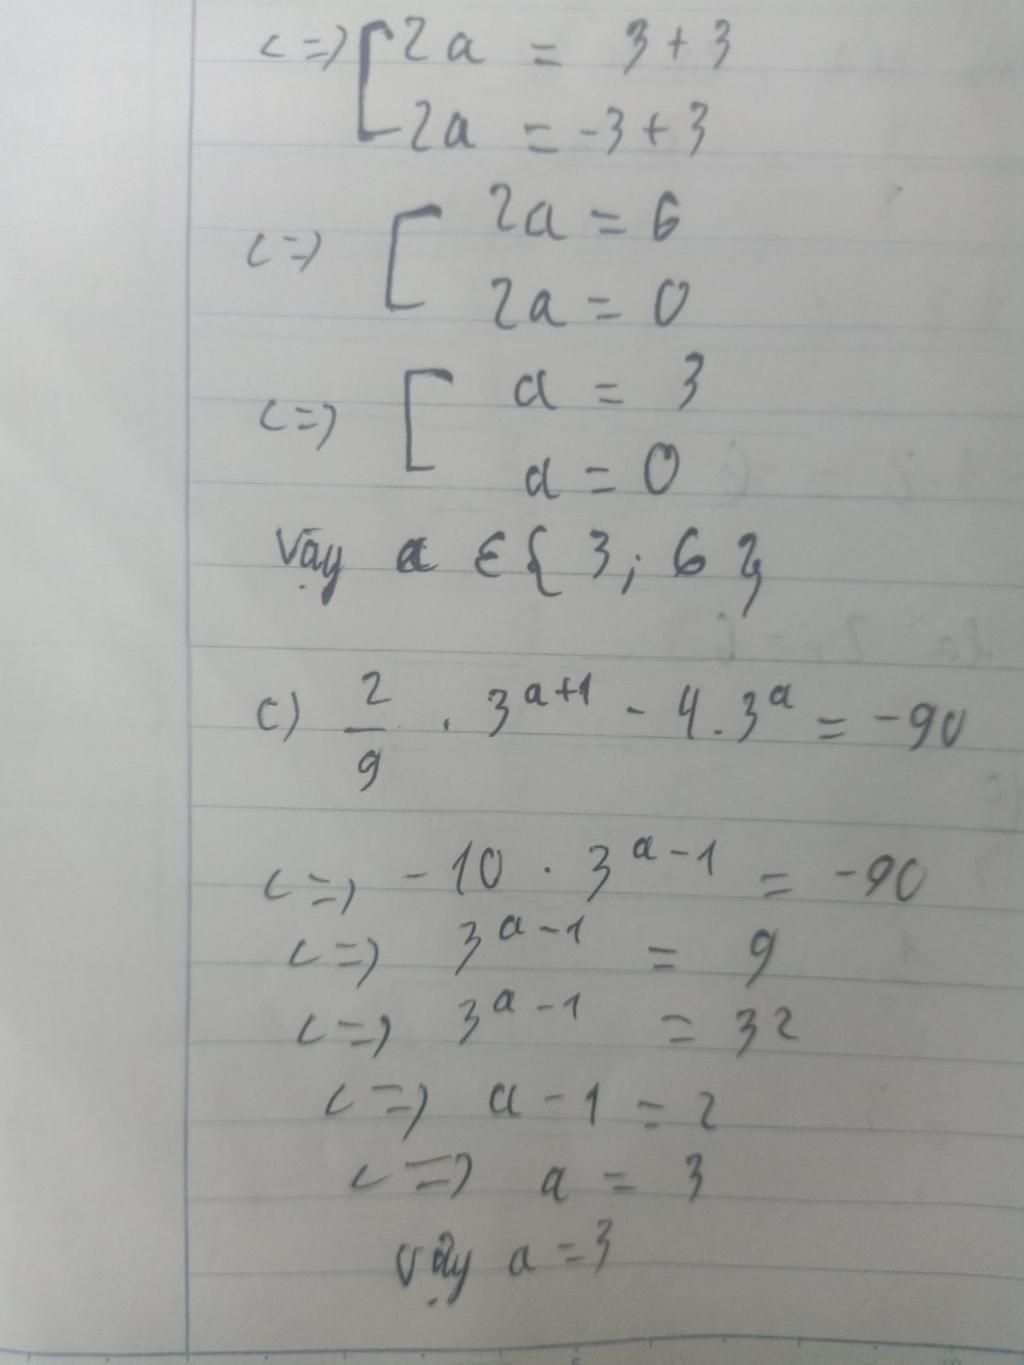 <=> [ 2a = 3 + 3
2a = -3 + 3
<=> [ 2a = 6
2a = 0
<=> [ a = 3
a = 0
Vậy a ∈ { 3 ; 6 }
c) 2/9 . 3^(a+1) - 4 . 3^a = -90
<=> -10 . 3^(a-1) = -90
<=> 3^(a-1) = 9
<=> 3^(a-1) = 32
<=> a - 1 = 2
<=> a = 3
Vậy a = 3